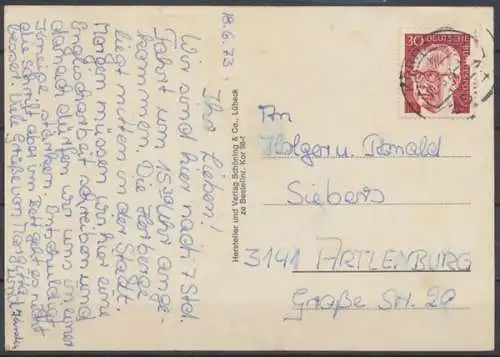 18.6.73
Ihr Lieben!
Wir sind hier nach 7 Std.
Fahrt um 15³⁰ Uhr ange-
kommen. Die Herberge
liegt mitten in der Stadt.
Morgen müssen wir hier eine
Englischarbeit schreiben und
danach dürfen wir uns in einer
Kneipe stärken. Entschuldigt
die Schrift aber im Bett geht es nicht
besser. Viele Grüße von
Hersteller und Verlag Schöning & Co., Lübeck
zu Bestellnr. Kor 98-f
30
DEUTSCHE
BUNDESPOST
An
Holger u. Ronald
Siebers
3141 ARTLENBURG
Große Str. 20